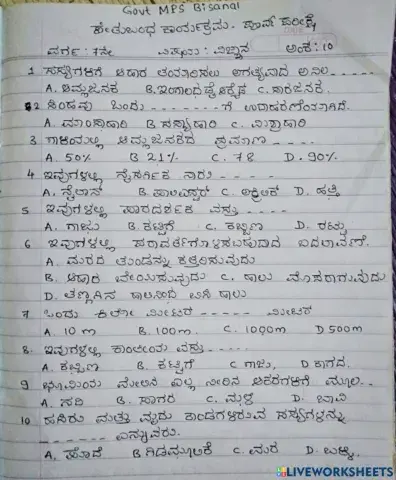 Govt MPS Bisanal
ಸೇತುಬಂಧ ಕಾರ್ಯಕ್ರಮ. ಪೂರ್ವ ಪರೀಕ್ಷೆ
ವರ್ಗ : 7ನೇ ವಿಷಯ : ವಿಜ್ಞಾನ ಅಂಕ : 10
1 ಸಸ್ಯಗಳಿಗೆ ಆಹಾರ ತಯಾರಿಸಲು ಅಗತ್ಯವಾದ ಅನಿಲ - - - - -
A. ಆಮ್ಲಜನಕ B. ಇಂಗಾಲದ ಡೈಆಕ್ಸೈಡ C. ಸಾರಜನಕ.
2 ಸಿಂಹವು ಒಂದು - - - - - - ಗೆ ಉದಾಹರಣೆಯಾಗಿದೆ.
A. ಮಾಂಸಾಹಾರಿ B ಸಸ್ಯಾಹಾರಿ C. ಮಿಶ್ರಾಹಾರಿ
3 ಗಾಳಿಯಲ್ಲಿ ಆಮ್ಲಜನಕದ ಪ್ರಮಾಣ - - - - .
A. 50% B 21% C. 78 D. 90%.
4 ಇವುಗಳಲ್ಲಿ ನೈಸರ್ಗಿಕ ನಾರು - - - - -
A. ನೈಲಾನ್ B. ಪಾಲಿಎಸ್ಟರ್ C. ಅಕ್ರಿಲಿಕ್ D. ಹತ್ತಿ
5 ಇವುಗಳಲ್ಲಿ ಪಾರದರ್ಶಕ ವಸ್ತು - - - - -
A. ಗಾಜು B. ಕಟ್ಟಿಗೆ C. ಕಬ್ಬಿಣ D. ರಟ್ಟು
6 ಇವುಗಳಲ್ಲಿ ಪರಾವರ್ತಗೊಳಿಸಬಹುದಾದ ಬದಲಾವಣೆ.
A. ಮರದ ತುಂಡನ್ನು ಕತ್ತರಿಸುವುದು
B. ಆಹಾರ ಬೇಯಿಸುವುದು C. ಹಾಲು ಮೊಸರಾಗುವುದು
D. ತಣ್ಣಗಿನ ಹಾಲಿನಿಂದ ಬಿಸಿ ಹಾಲು
7. ಒಂದು ಕಿಲೋ ಮೀಟರ - - - - - ಮೀಟರ
A. 10 m B. 100 m. C. 1000m D 500m
8. ಇವುಗಳಲ್ಲಿ ಕಾಂತೀಯ ವಸ್ತು - - - - - .
A. ಕಬ್ಬಿಣ B. ಕಟ್ಟಿಗೆ C ಗಾಜು, D ಕಾಗದ.
9 ಭೂಮಿಯ ಮೇಲಿನ ಎಲ್ಲ ನೀರಿನ ಆಕರಗಳಿಗೆ ಮೂಲ - -
A. ನದಿ B. ಸಾಗರ C. ಮಳೆ D. ಬಾವಿ
10 ಹಸಿರು ಮತ್ತು ಮೃದು ಕಾಂಡಗಳಿರುವ ಸಸ್ಯಗಳನ್ನು
- - - - - - ಎನ್ನುವರು.
A. ಪೊದೆ B ಗಿಡಮೂಲಿಕೆ C. ಮರ D. ಬಳ್ಳಿ
LIVEWORKSHEETS